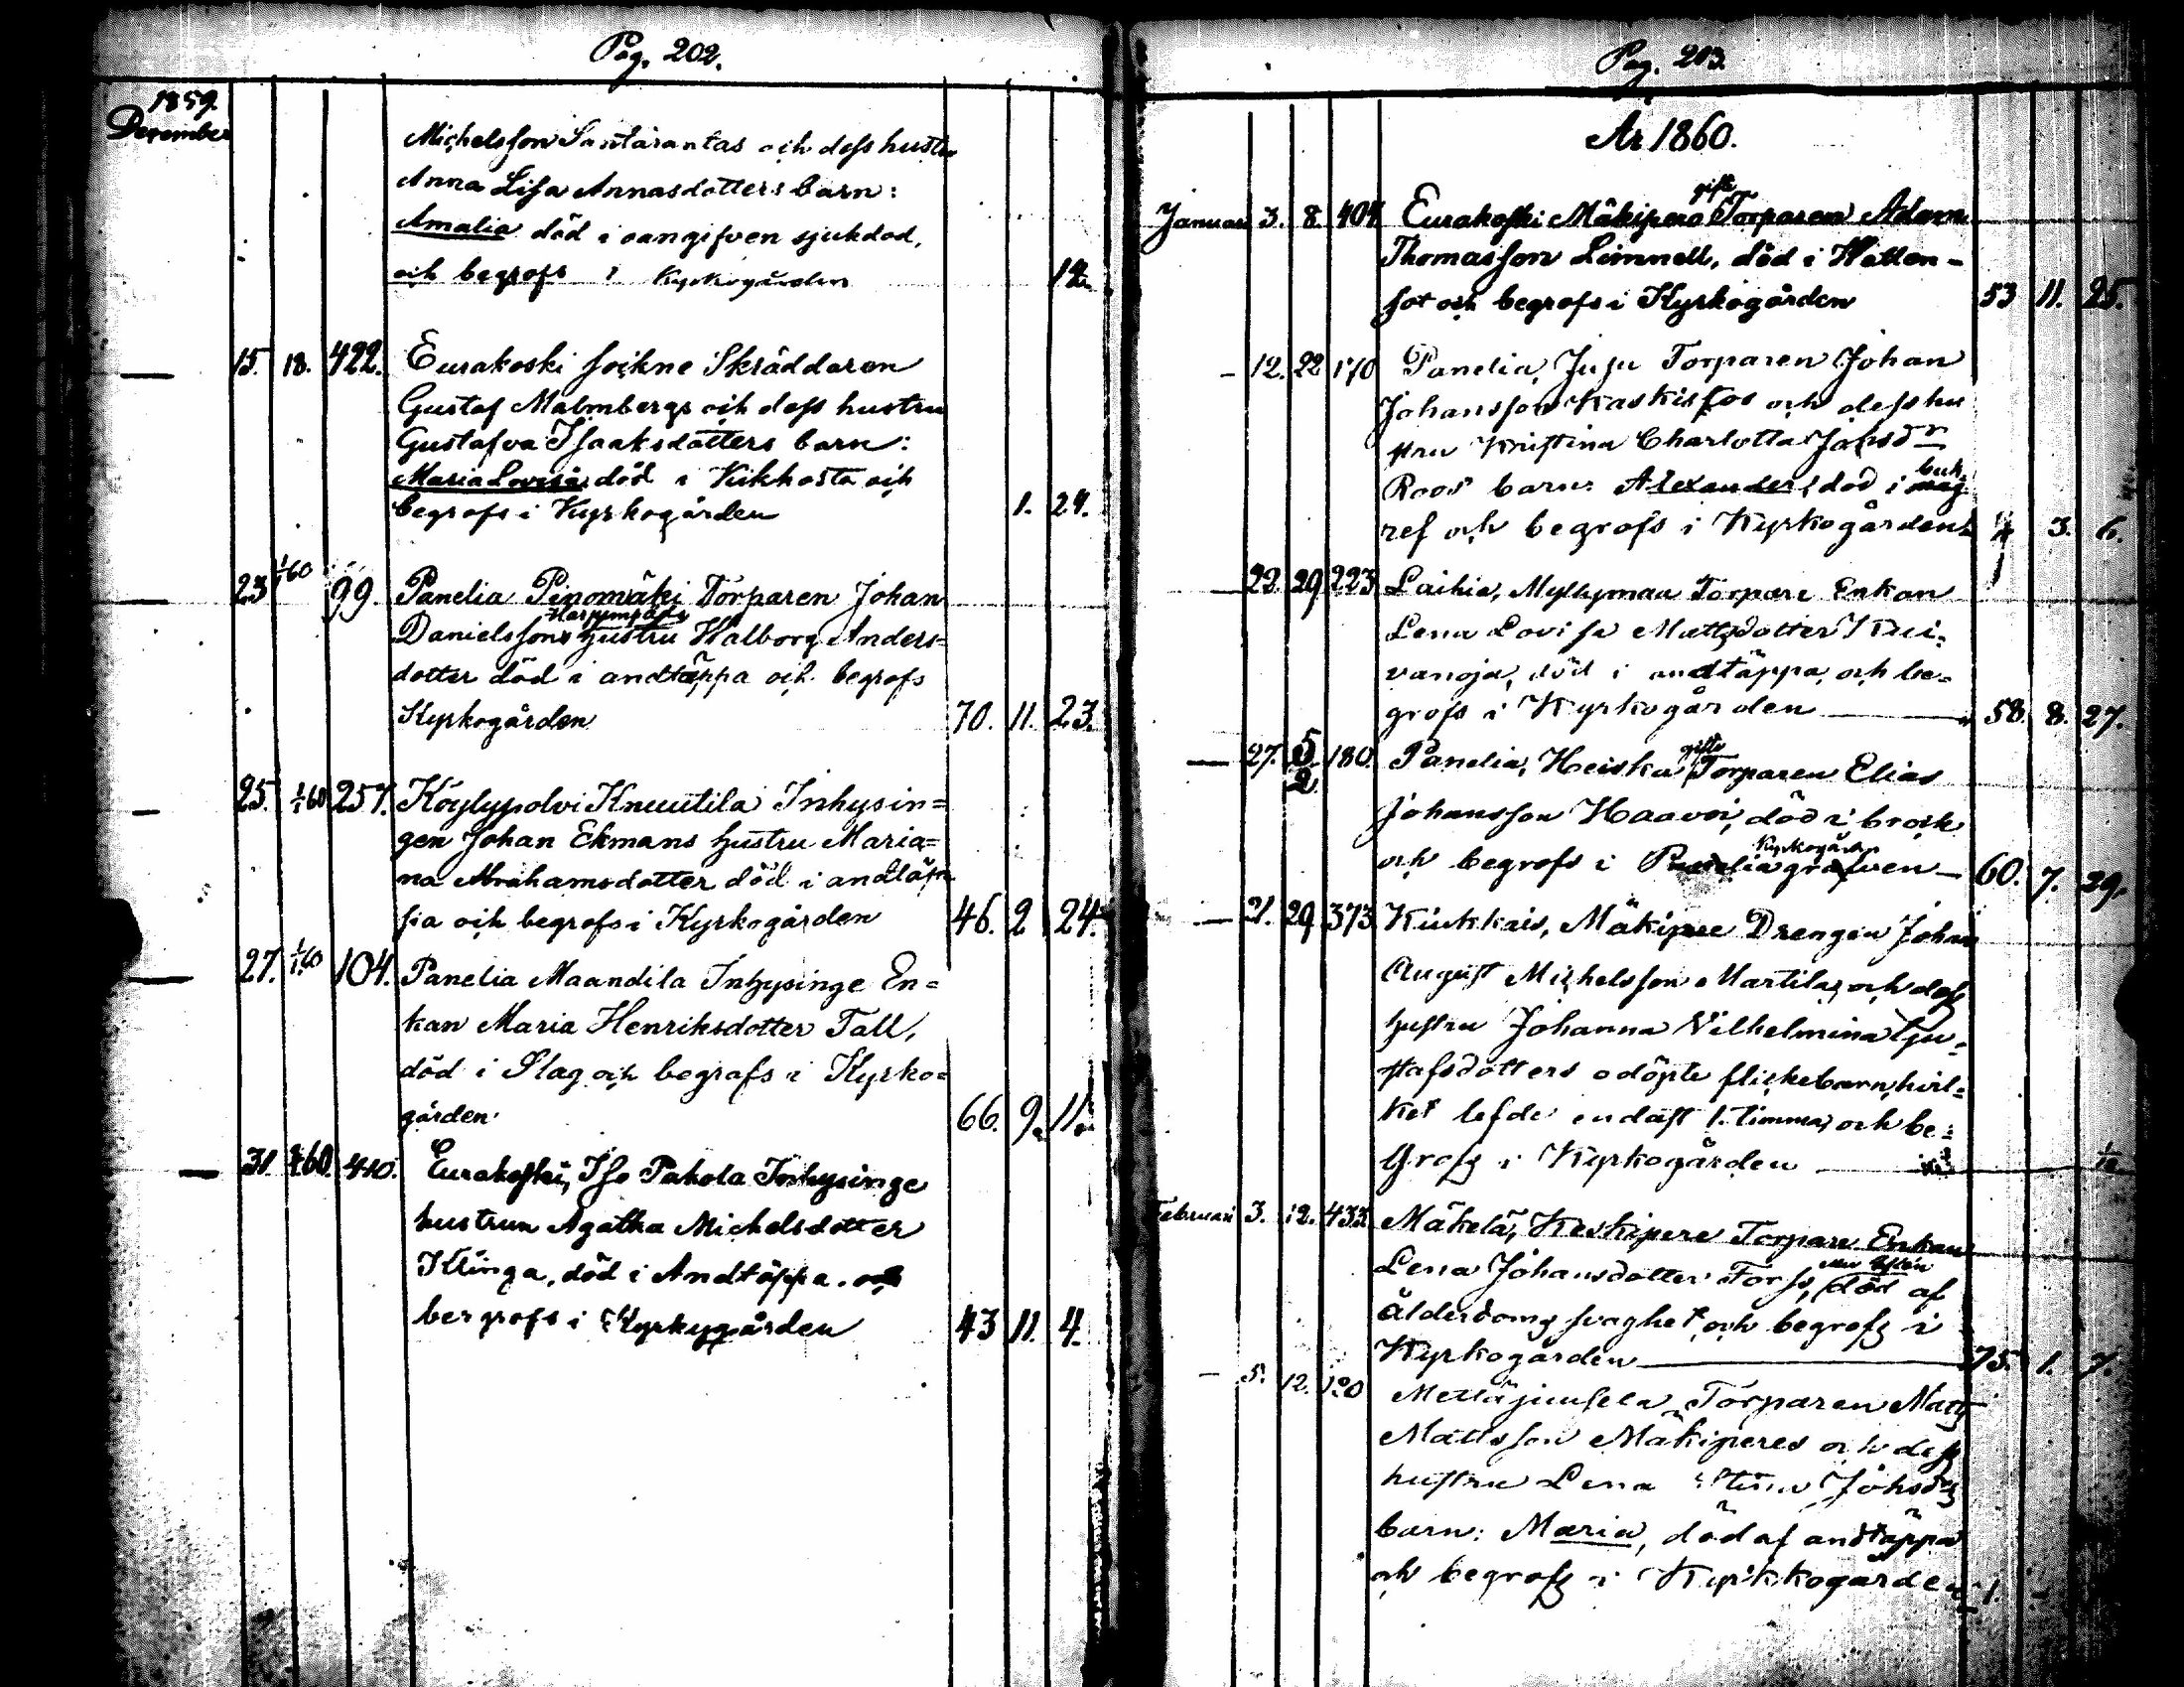 Pag. 202.
1859.
December
Michelsson Santarantas och dess hustru
Anna Lisa Annasdotters barn:
Amalia död i oangifven sjukdod,
och begrofs i Kyrkogården 12.
15. 18. 422. Eurakoski Sockne Skräddaren
Gustaf Malmbergs och dess hustru
Gustafva Isaaksdotters barn:
Maria Lovisa, död i Kikhosta och
begrofs i Kyrkogården 1. 24.
23 1/1 60 99 Panelia Pinomäki Torparen Johan
Danielssons hustru Walborg Anders=
dotter död i andtäppa och begrofs
Kyrkogården 70. 11. 23.
25. 1/1 60 257. Köylypolvi Knuutila Inhysin=
gen Johan Ekmans hustru Maria=
na Abrahamsdotter död i andtäp
pa och begrofs i Kyrkogården 46. 2 24.
27. 1/1 60 104. Panelia Maandila Inhysinge En=
kan Maria Henriksdotter Tall,
död i Slag och begrafs i Kyrko=
gården 66. 9. 11.
31. 60. 410. Eurakoski, Iso Pakola Inhysinge
hustrun Agatha Michelsdotter
Klinga, död i Andtäppa. och
bergrofs i Kyrkygården 43 11. 4.
Pag. 203.
År 1860.
gifte
Januari 3. 8. 404. Eurakoski Mäkipera Torparen Adam
Thomasson Limnell, död i Watten-
sot och begrofs i Kyrkogården 53 11. 25.
12. 22 170 Panelia, Juju Torparen Johan
Johansson Kaskistos och dess hu
stru Kristina Charlotta Johsdr
buk
Roos barn: Alexander, död i mag
ref och begrofs i Kyrkogården 3. 6.
22. 29 223 Laihia, Myllymaa Torpare Enkan
Lena Lovisa Mattsdotter Kui-
vanoja, död i andtäppa, och be=
grofs i Kyrkogården 58. 8. 27.
gifte
27. 5/2 180. Panelia, Heiska Torparen Elias
Johansson Haavoi, död i bråck
Kyrkogården
och begrofs i Panelia grafven 60. 7. 29.
21. 29 373 Kiukkais, Mäkipere Drengen Johan
August Michelsson Martilas och dess
hustru Johanna Vilhelmina Gu=
stafsdotters odöpte flickebarn, hvil=
ket lefde endast 1. timma, och be=
grofs i Kyrkogården
Februari 3. 12. 433 Mäkelä, Keskipere Torpare Enkan
Lena Johansdotter Forss, död af
ålderdoms svaghet, och begrofs i
Kyrkogården 75. 1. 7.
5. 12. 120 Mettäjuusela Torparen Matts
Mattsson Mäkiperes och dess
hustru Lena Stina Johsdrs
barn: Maria, död af andtäppa
och begrofs i Kyrkkogården 1. -